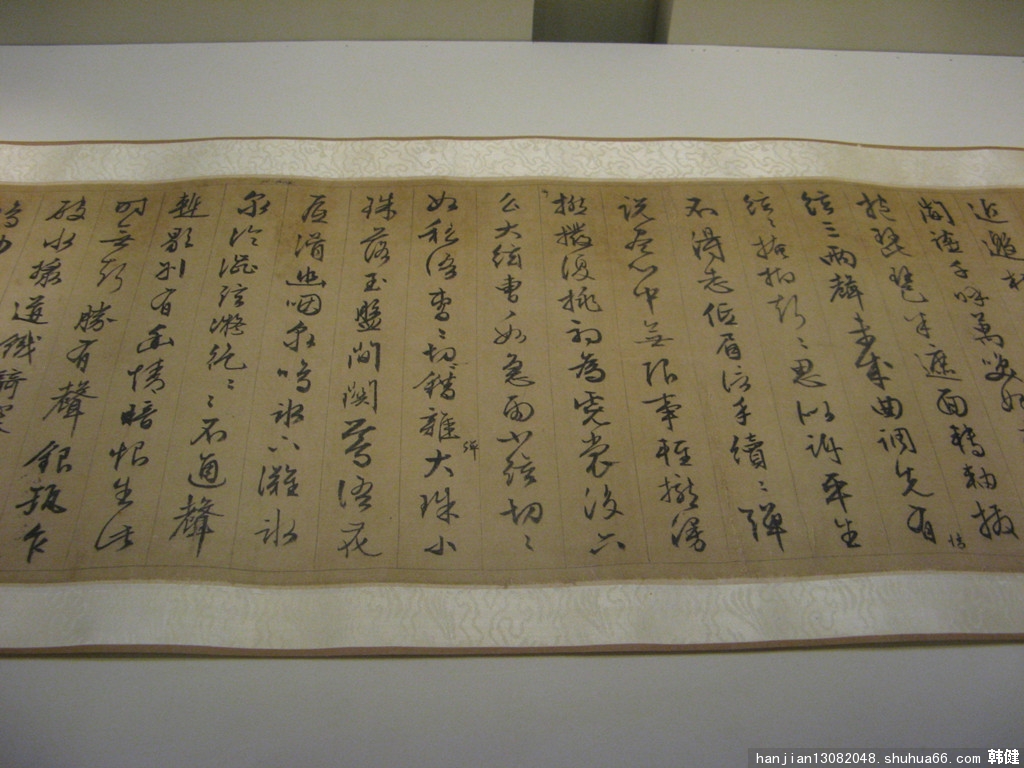 近邀相
開宴千呼萬喚始
抱琵琶半遮面轉軸撥
絃三兩聲未成曲調先有情
絃〻掩抑聲〻思似訴平生
不得志低眉信手續〻彈
說盡心中無限事輕攏漫
撚撥復挑初為霓裳後六
么大絃曹〻如急雨小絃切〻
如私語曹〻切〻錯雜彈大珠小
珠落玉盤間關鶯語花
底滑幽咽泉鳴冰下灘冰
泉冷澀弦凝絕〻〻不通聲
暫歇別有幽情暗恨生此
時無聲勝有聲銀瓶乍
破水漿迸鐵騎突
hanjian13082048. shuhua66. com 韩健